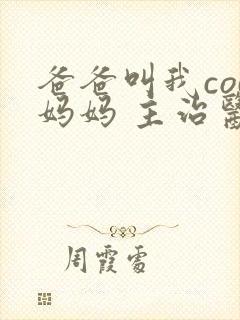 爸爸叫我co
妈妈 主治醫
周霞